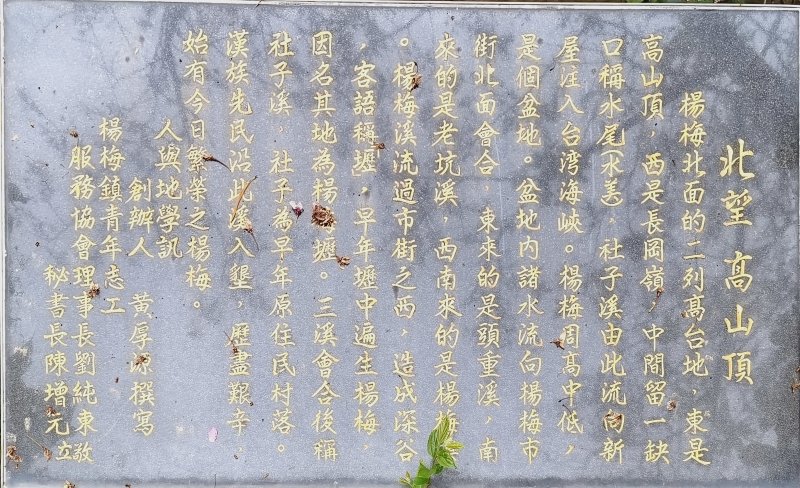 北望高山頂
楊梅北面的二列高台地，東是
高山頂，西是長岡嶺，中間留一缺
口稱水尾(水美)，社子溪由此流向新
屋注入台湾海峽。楊梅周高中低，
是個盆地。盆地內諸水流向楊梅市
街北面會合，東來的是頭重溪，南
來的是老坑溪，西南來的是楊梅
。楊梅溪流過市街之西，造成深谷
，客語稱「壢」，早年壢中遍生楊梅，
因名其地為楊壢。三溪會合後稱
社子溪，社子為早年原住民村落。
漢族先民沿此溪入墾，歷盡艱辛，
始有今日繁榮之楊梅。
人與地學訊
創辦人 黃厚源撰寫
楊梅鎮青年志工
服務協會理事長劉純東敬
秘書長陳增元立